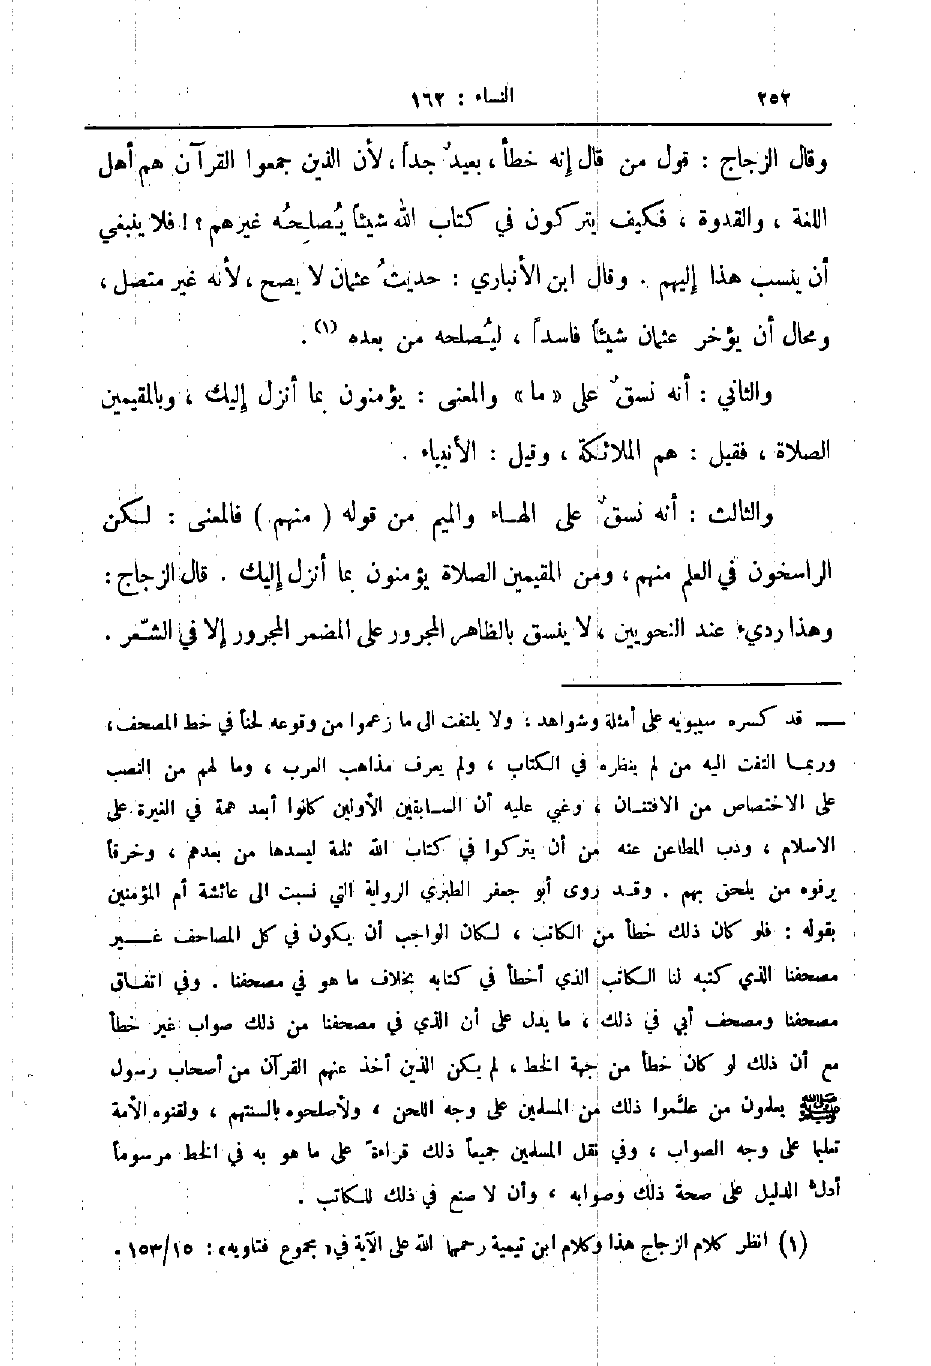 ٢٥٢ النساء : ١٦٢
وقال الزجاج : قول من قال إنه خطأ ، بعيدٌ جداً ، لأن الذين جمعوا القرآن هم أهل
اللغة ، والقدوة ، فكيف يتركون في كتاب الله شيئاً يُصلِحُه غيرهم ؟ ! فلا ينبغي
أن ينسب هذا إليهم . وقال ابن الأنباري : حديثُ عثمان لا يصح ، لأنه غير متصل ،
ومحال أن يؤخر عثمان شيئاً فاسداً ، ليُصلحه من بعده (١) .
والثاني : أنه نسقٌ على « ما » والمعنى : يؤمنون بما أنزل إليك ، وبالمقيمين
الصلاة ، فقيل : هم الملائكة ، وقيل : الأنبياء .
والثالث : أنه نسقٌ على الهاء والميم من قوله ( منهم ) فالمعنى : لكن
الراسخون في العلم منهم ، ومن المقيمين الصلاة يؤمنون بما أنزل إليك . قال الزجاج :
وهذا رديء عند النحويين ، لا ينسق بالظاهر المجرور على المضمر المجرور إلا في الشّعر .
— قد كسره سيبويه على أمثلة وشواهد : ولا يلتفت الى ما زعموا من وقوعه لحناً في خط المصحف ،
وربما التفت اليه من لم ينظره في الكتاب ، ولم يعرف مذاهب العرب ، وما لهم من النصب
على الاختصاص من الافتنان ، وغبي عليه أن السابقين الأولين كانوا أبعد همة في الغيرة على
الاسلام ، وذب المطاعن عنه من أن يتركوا في كتاب الله ثلمة ليسدها من بعدهم ، وخرقاً
يرفوه من يلحق بهم . وقد روى أبو جعفر الطبري الرواية التي نسبت الى عائشة أم المؤمنين
بقوله : فلو كان ذلك خطأ من الكاتب ، لكان الواجب أن يكون في كل المصاحف غير
مصحفنا الذي كتبه لنا الكاتب الذي أخطأ في كتابه بخلاف ما هو في مصحفنا . وفي اتفاق
مصحفنا ومصحف أبي في ذلك ، ما يدل على أن الذي في مصحفنا من ذلك صواب غير خطأ
مع أن ذلك لو كان خطأ من جهة الخط ، لم يكن الذين أخذ عنهم القرآن من أصحاب رسول
ﷺ يعلمون من علّموا ذلك من المسلمين على وجه اللحن ، ولأصلحوه بألسنتهم ، ولقنوه الأمة
تعليما على وجه الصواب ، وفي نقل المسلمين جميعاً ذلك قراءة على ما هو به في الخط مرسوماً
أدل الدليل على صحة ذلك وصوابه ، وأن لا صنع في ذلك للكاتب .
(١) انظر كلام الزجاج هذا وكلام ابن تيمية رحمهما الله على الآية في « مجموع فتاويه » : ١٥٣/١٥ .